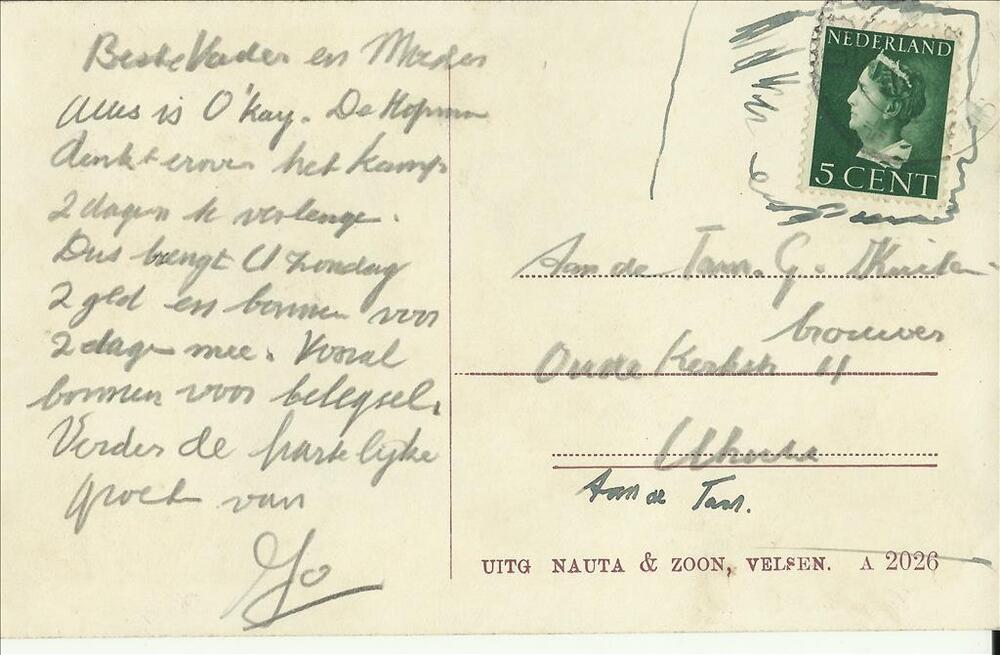 Beste Vader en Moeder
Alles is O'kay. De Hopman
denkt erover het kamp
2 dagen te verlenge.
Dus brengt U zondag
2 geld en bonnen voor
2 dagen mee. Vooral
bonnen voor belegsel.
Verder de hartelijke
groet van
Jo
NEDERLAND
5 CENT
Aan de Fam. G. Kuilen-
brouwer
Oude Kerkstr 11
Utrecht
Aan de Fam.
UITG NAUTA & ZOON, VELSEN. A 2026